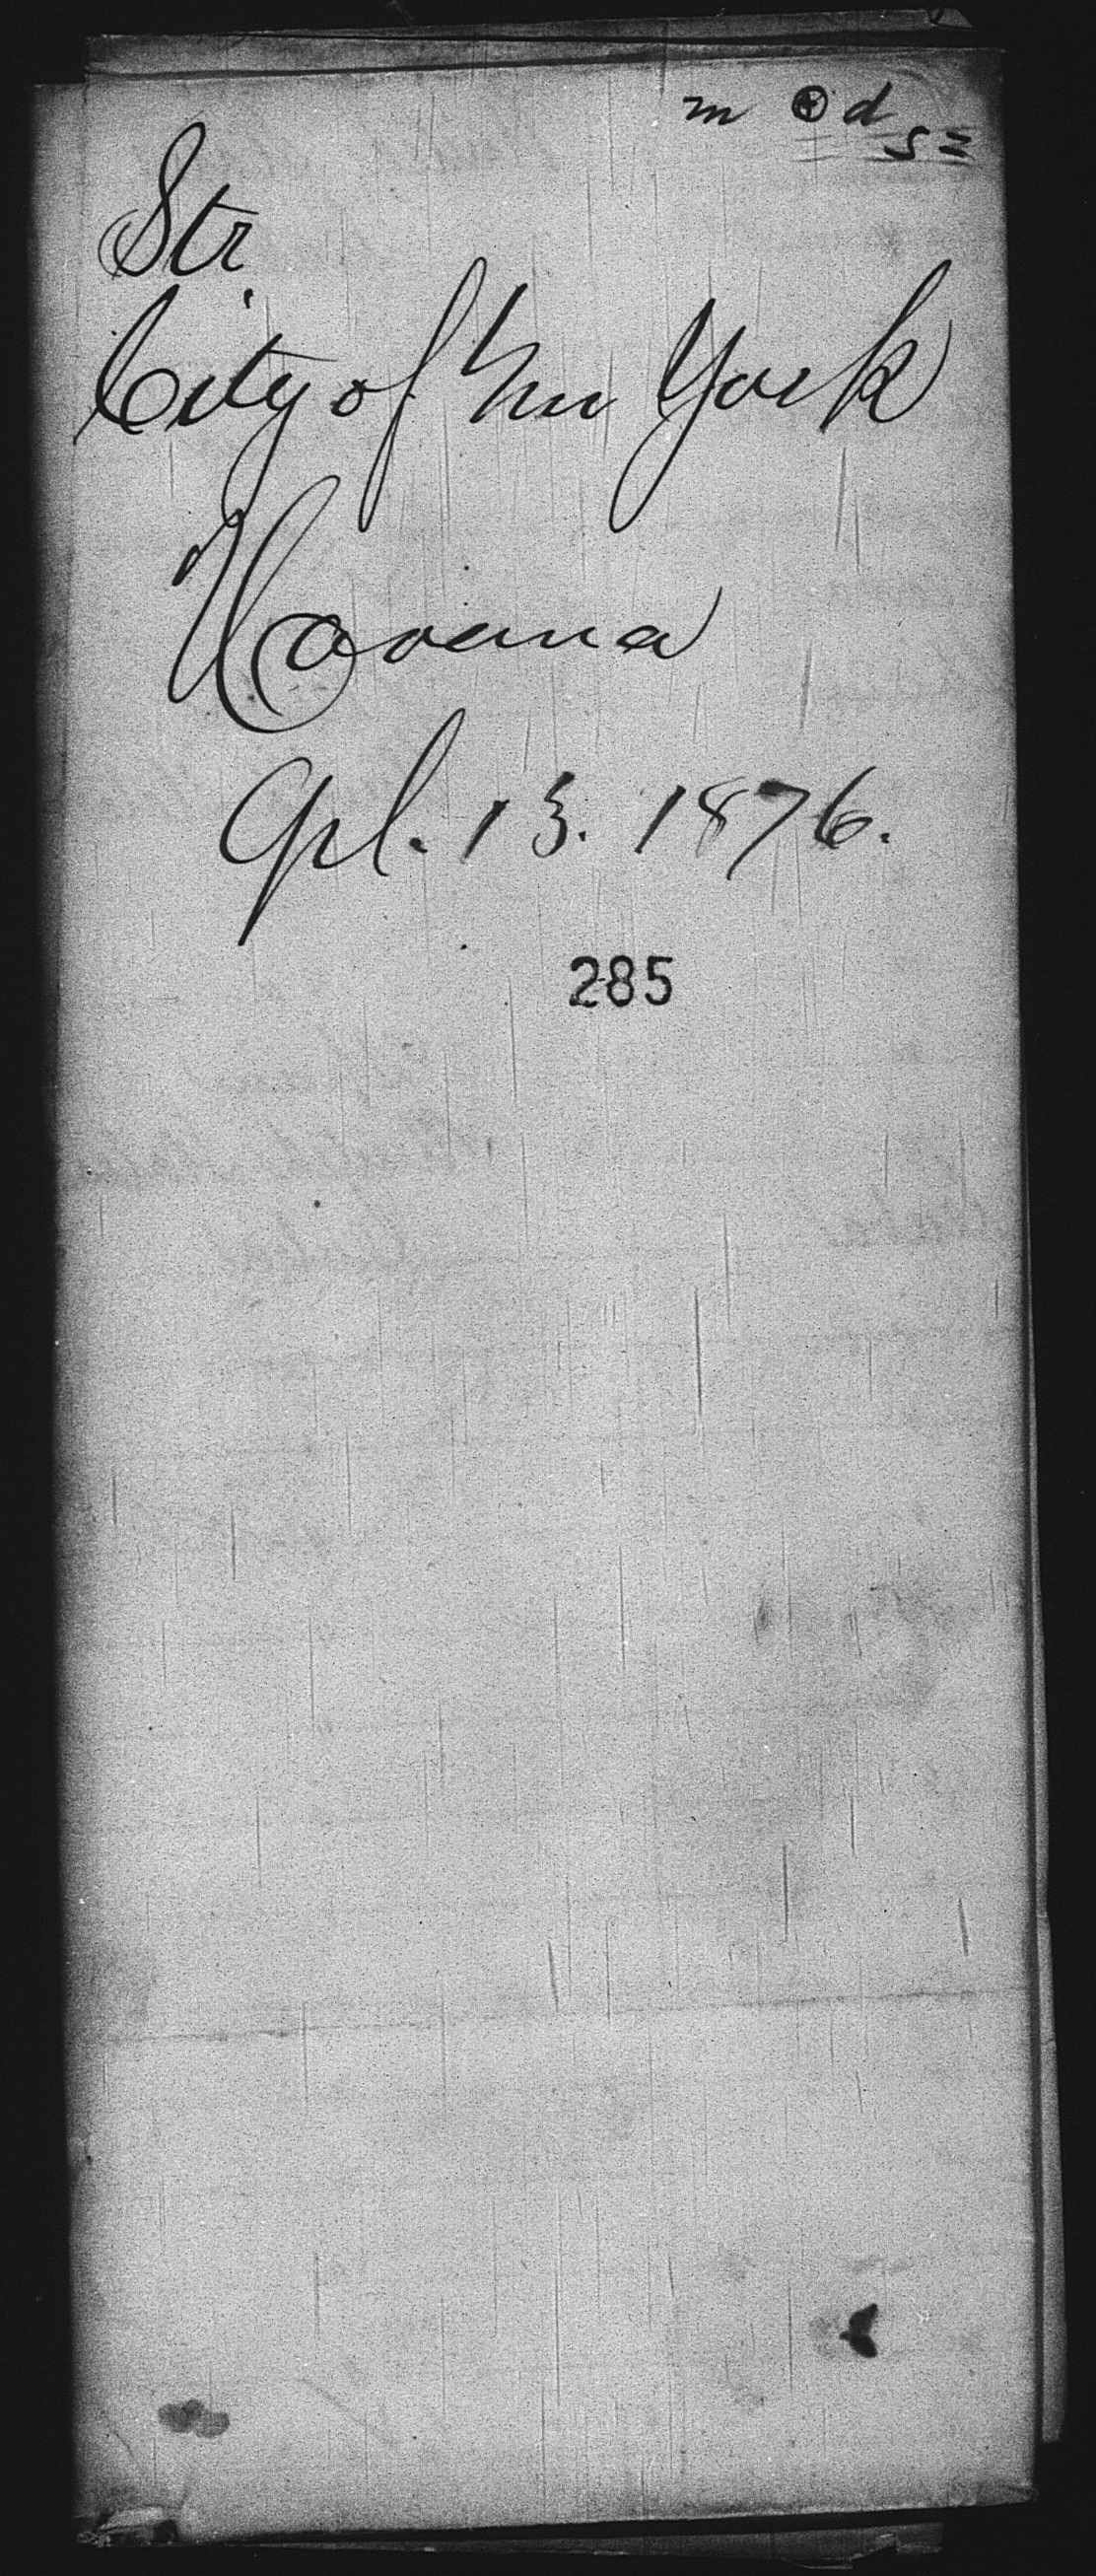 m d
Str.
City of New York
Havana
Apl. 13. 1876.
285